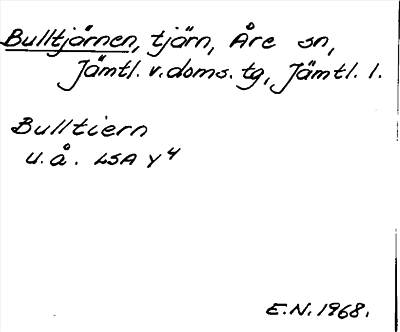 Bulltjärnen, tjärn, Åre sn,
Jämtl. v. doms. tg, Jämtl. l.
Bulltiern
u. å. LSA Y4
E.N. 1968.